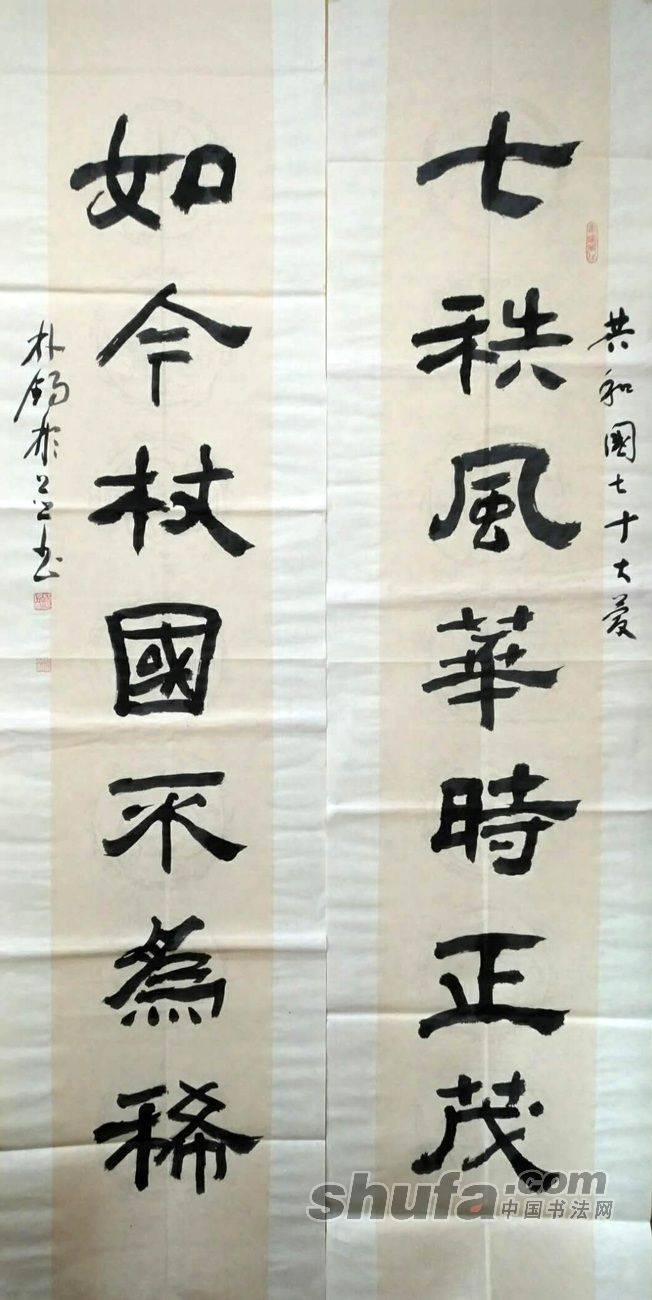 共和國七十大慶
七秩風華時正茂
如今杖國不為稀
朴錫於
书
shufa.com
中国书法网